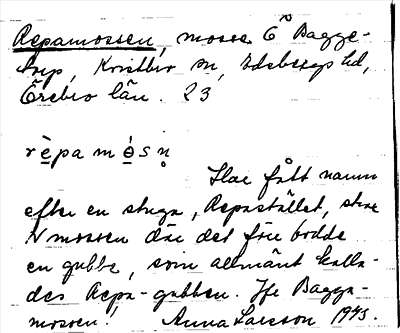 Repamossen, mosse Ö Bagge-
torp, Kristbro sn, Edsbergs hd,
Örebro län. 23
rèpa mòsn̥
Har fått namn
efter en stuga, Repastället, strax
N mossen där det förr bodde
en gubbe, som allmänt kalla-
des Repa-gubben. Jfr Bagga-
mossen. Anna Larsson 1943.